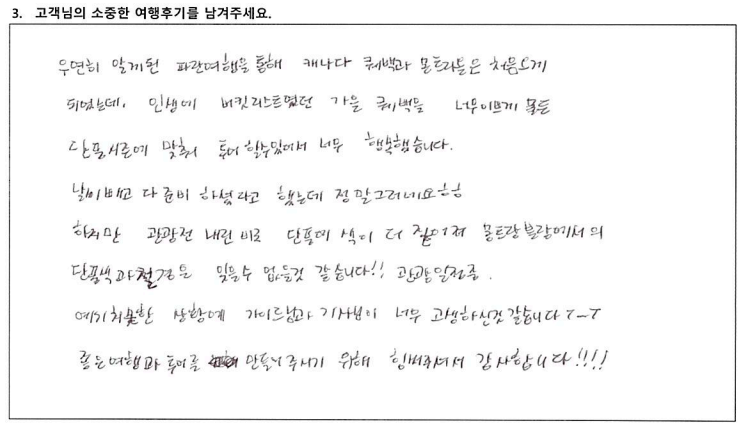 3. 고객님의 소중한 여행후기를 남겨주세요.
우연히 알게된 파란여행을 통해 캐나다 퀘백과 몬트리올은 처음오게
되었는데, 인생에 버킷리스트였던 가을 퀘백을 너무이쁘게 물든
단풍시즌에 맞춰 투어 할수있어서 너무 행복했습니다.
날씨빼고 다 준비 하셨다고 했는데 정말그러네요ㅎㅎ
하지만 관광전 내린 비로 단풍의 색이 더 짙어져 몽트랑블랑에서의
단풍색과 절경을 잊을수 없을것 같습니다!! 관광일정중.
예기치못한 상황에 가이드님과 기사님이 너무 고생하신것같습니다 T-T
좋은여행과 투어를 만들어주시기 위해 힘써주셔서 감사합니다!!!!